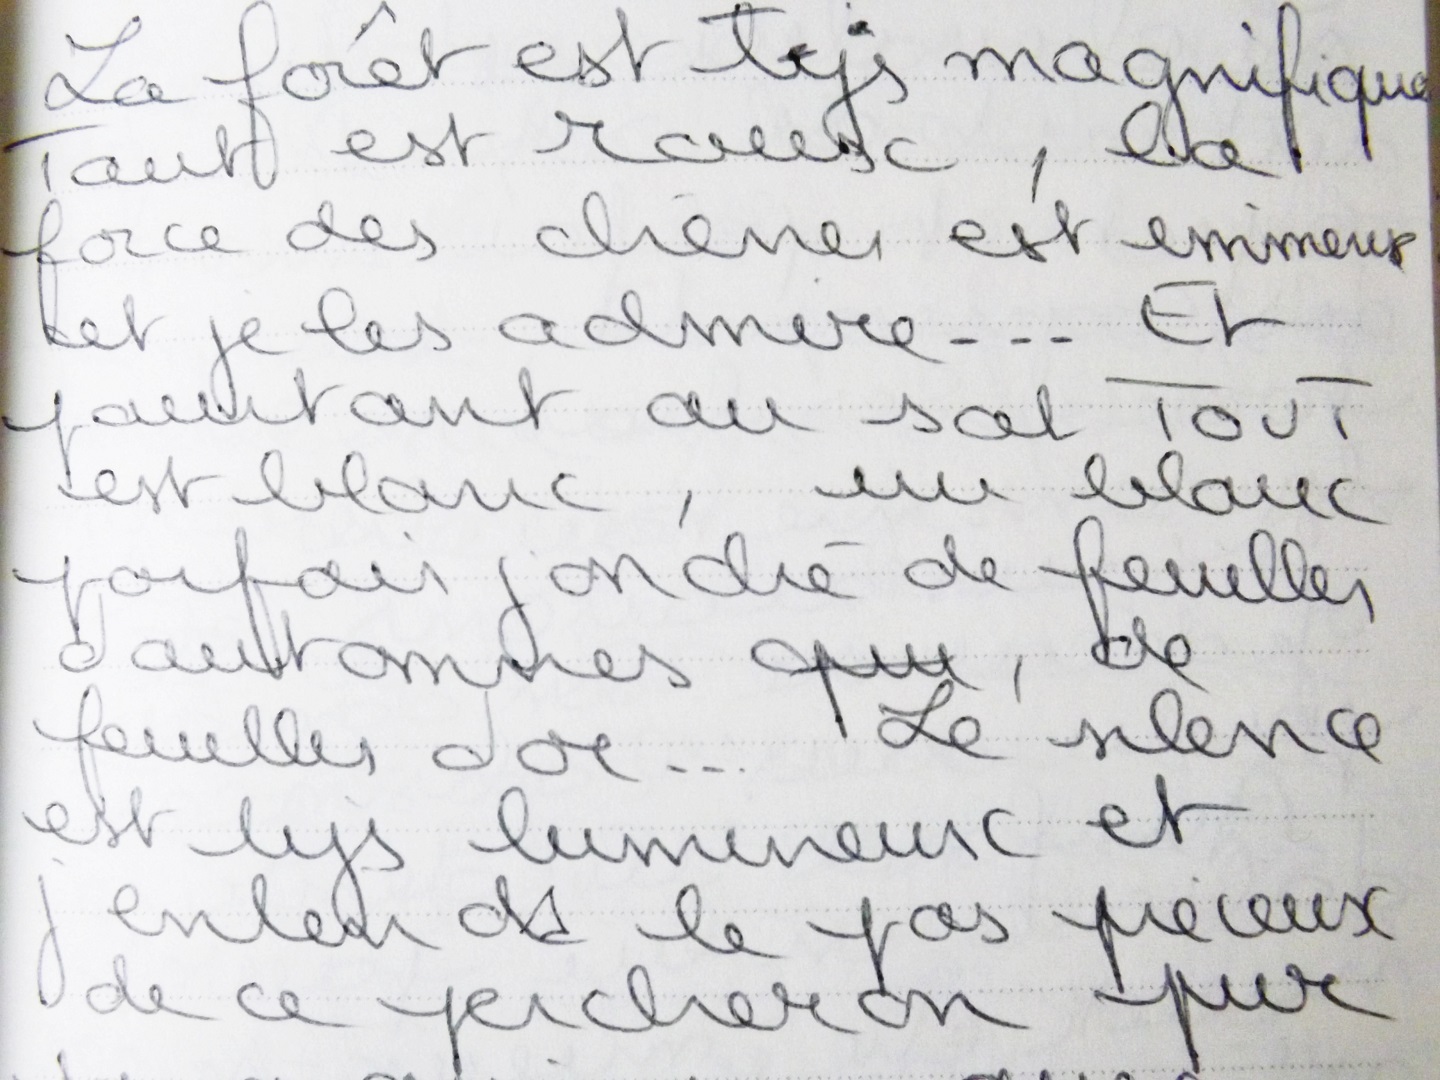 La forêt est tjs magnifique
Tout est roux, la
force des chênes est immense
et je les admire--- Et
pourtant au sol TOUT
est blanc, un blanc
parfois jonché de feuilles
d'automnes, de
feuilles d'or... Le silence
est tjs lumineux et
j'entends le pas précieux
de ce percheron pur